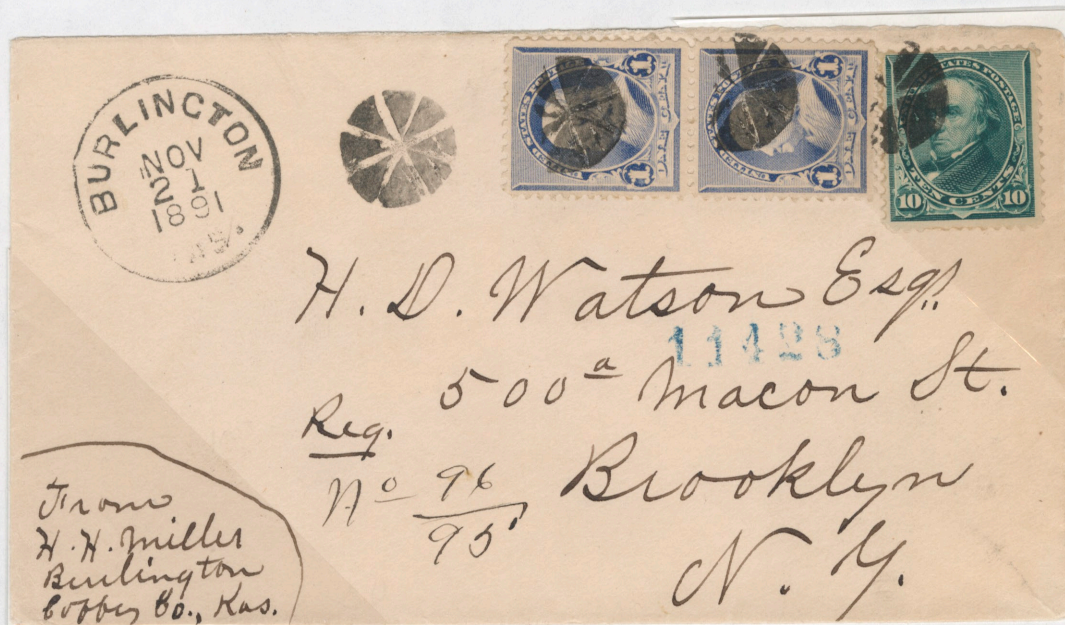 BURLINGTON
NOV
21
1891
1
1
1
1
TEN CENTS
10
10
H. D. Watson Esq.
11428
500a Macon St.
Reg.
No 96
95
Brooklyn
N. Y.
From
H. H. Miller
Burlington
Coffey Co., Kas.